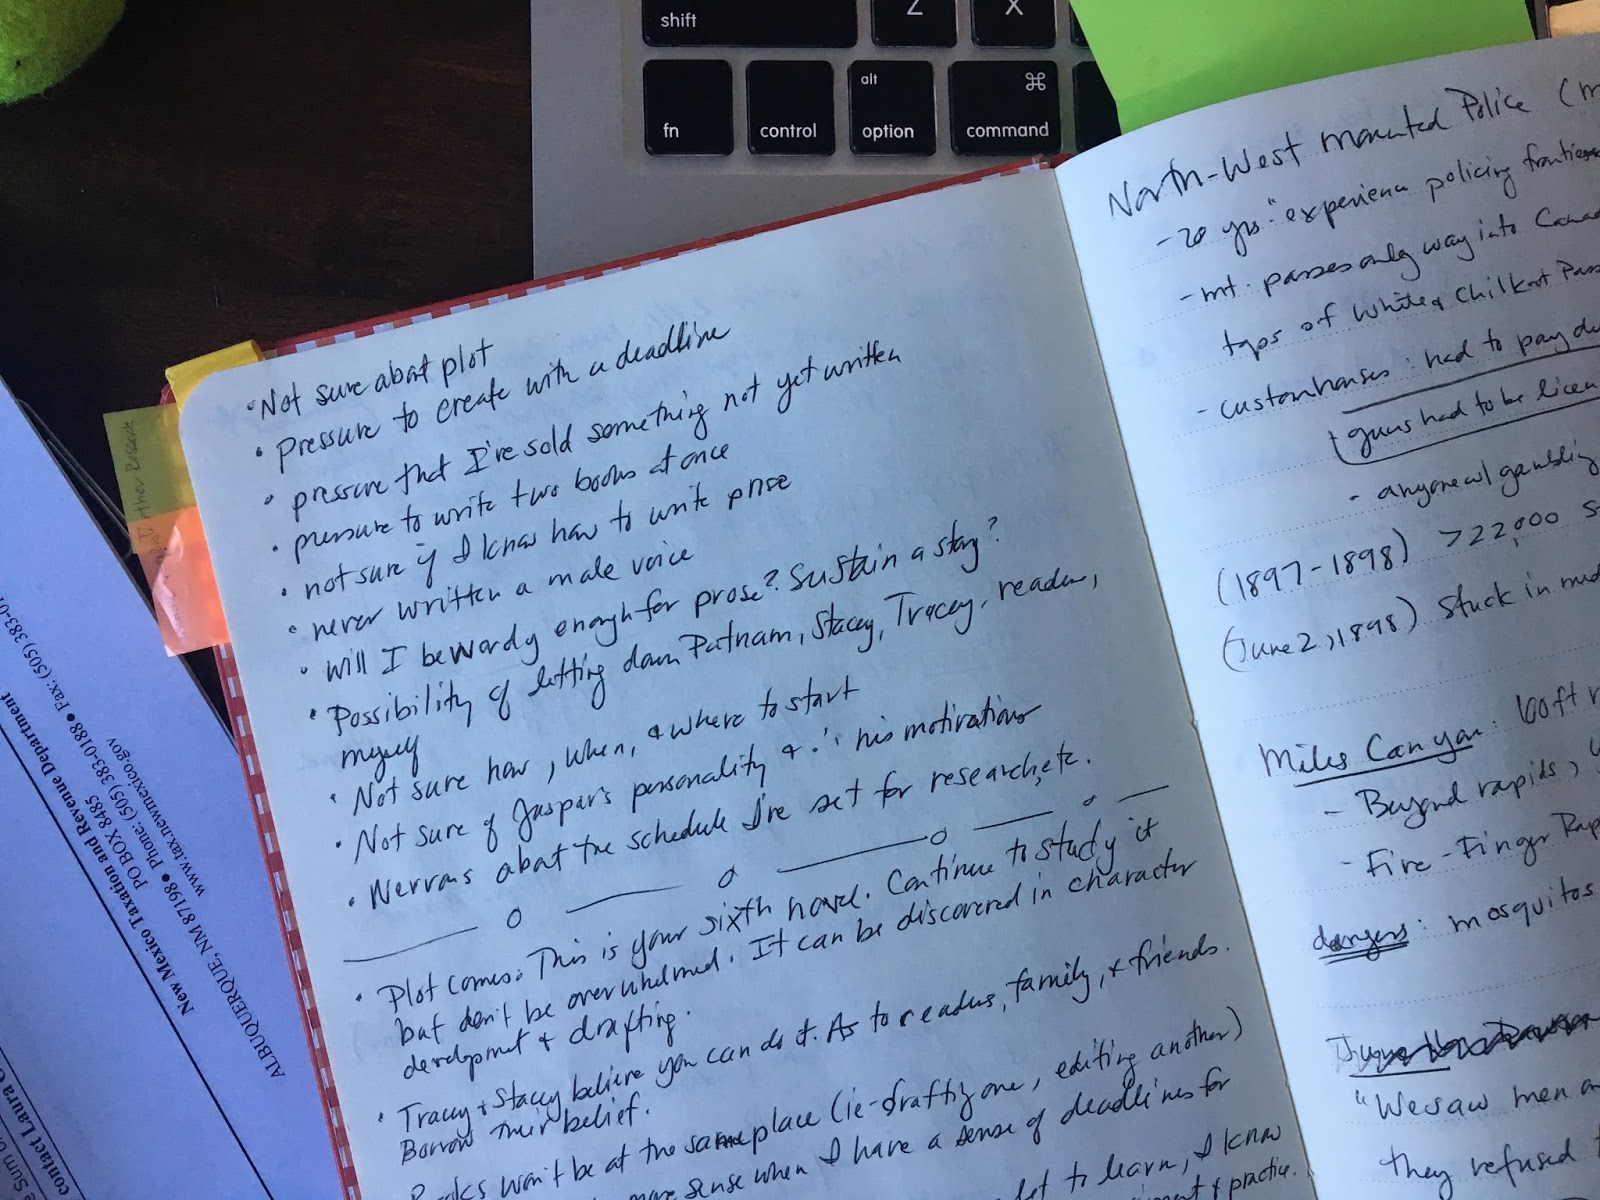 shift
Z
X
fn
control
alt
option
⌘
command
• Not sure about plot
• Pressure to create with a deadline
• pressure that I've sold something not yet written
• pressure to write two books at once
• not sure if I know how to write prose
• never written a male voice
• Will I be wordy enough for prose? Sustain a story?
• Possibility of letting down Putnam, Stacey, Tracey, readers,
myself
• Not sure how, when, & where to start
• Not sure of Jaspar's personality & his motivations
• Nervous about the schedule I've set for research, etc.
• Plot comes. This is your sixth novel. Continue to study it
but don't be overwhelmed. It can be discovered in character
development & drafting.
• Tracey & Stacey believe you can do it. As to readers, family, & friends.
Borrow their belief.
Books won't be at the same place (ie - drafting one, editing another)
more sense when I have a sense of deadlines for
lot to learn, I know
& practice.
North-West Mounted Police (m
- 20 yrs." experience policing frontier
- mt. passes only way into Canad
tops of White & Chilkoot Pass
- customhouses: had to pay du
guns had to be licen
- anyone w/ gambling
(1897-1898) >22,000 s
(June 2, 1898) Stuck in mud
Miles Canyon: 100ft r
- Beyond rapids,
- Five-Finger Rap
dangers: mosquitos
"We saw men a
they refused t
Further Research
New Mexico Taxation and Revenue Department
PO BOX 8485
ALBUQUERQUE, NM 87198 ● Phone: (505) 383-0188 ● Fax: (505) 383-01
www.tax.newmexico.gov
contact Laura C
e Stum